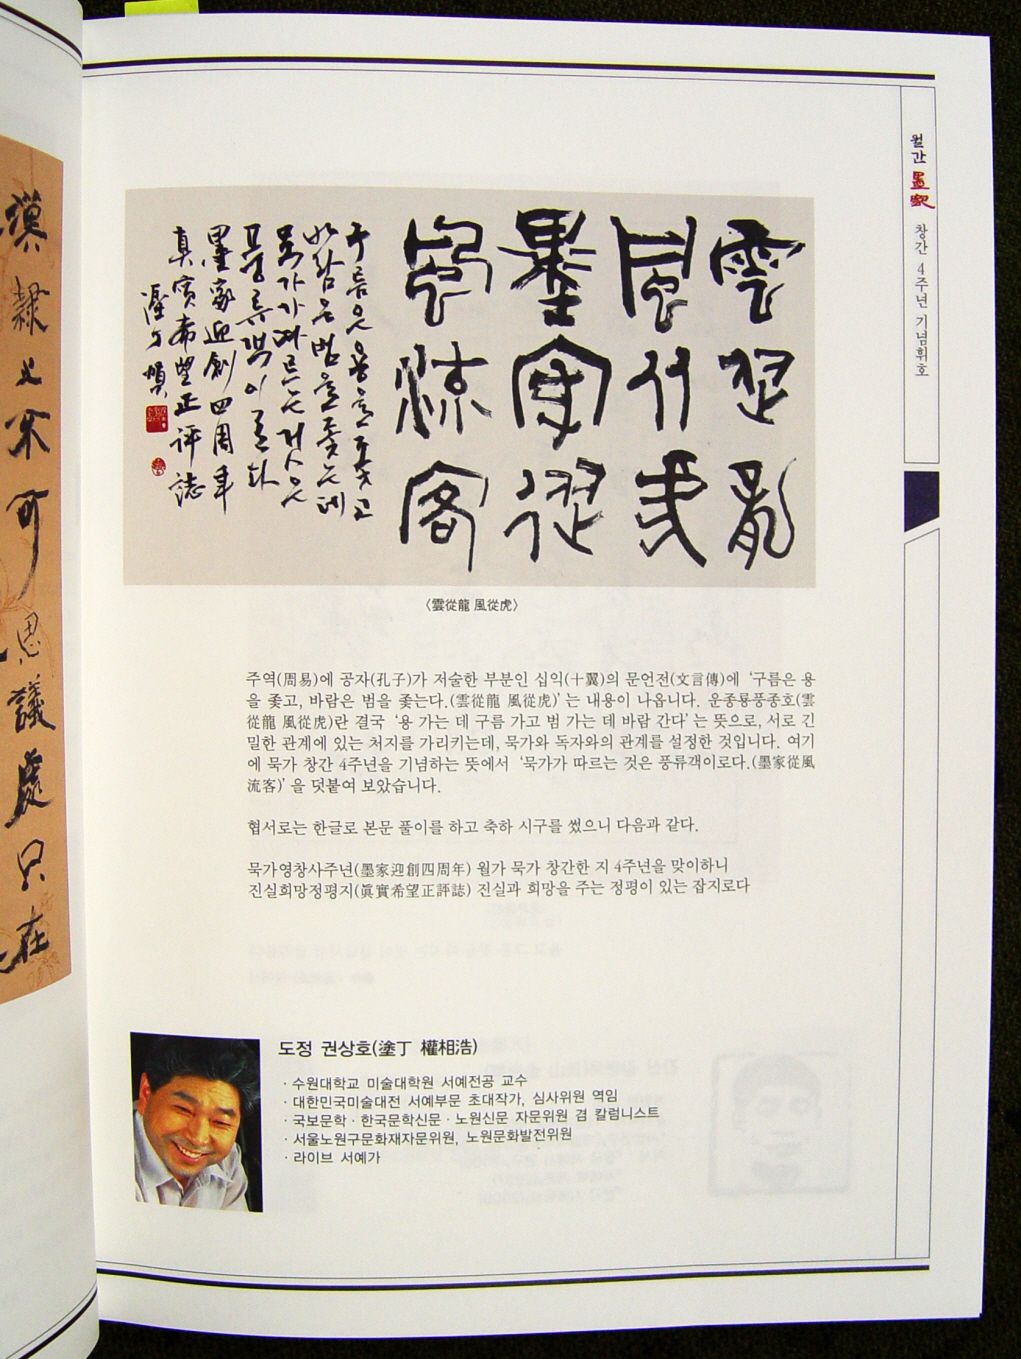 월간 墨家 창간 4주년 기념휘호
雲從龍
風從虎
墨家從
風流客
구름은 용을 좇고
바람은 범을 좇는데
묵가가 따르는 거스은
풍류객이로다
墨家迎創四周年
眞實希望正評誌
塗丁
〈雲從龍 風從虎〉
주역(周易)에 공자(孔子)가 저술한 부분인 십익(十翼)의 문언전(文言傳)에 ‘구름은 용
을 좇고, 바람은 범을 좇는다.(雲從龍 風從虎)’는 내용이 나옵니다. 운종룡풍종호(雲
從龍 風從虎)란 결국 ‘용 가는 데 구름 가고 범 가는 데 바람 간다’는 뜻으로, 서로 긴
밀한 관계에 있는 처지를 가리키는데, 묵가와 독자와의 관계를 설정한 것입니다. 여기
에 묵가 창간 4주년을 기념하는 뜻에서 ‘묵가가 따르는 것은 풍류객이로다.(墨家從風
流客)’을 덧붙여 보았습니다.
협서로는 한글로 본문 풀이를 하고 축하 시구를 썼으니 다음과 같다.
묵가영창사주년(墨家迎創四周年) 월가 묵가 창간한 지 4주년을 맞이하니
진실희망정평지(眞實希望正評誌) 진실과 희망을 주는 정평이 있는 잡지로다
도정 권상호(塗丁 權相浩)
· 수원대학교 미술대학원 서예전공 교수
· 대한민국미술대전 서예부문 초대작가, 심사위원 역임
· 국보문학 · 한국문학신문 · 노원신문 자문위원 겸 칼럼니스트
· 서울노원구문화재자문위원, 노원문화발전위원
· 라이브 서예가
漢隷之不可思議處只在